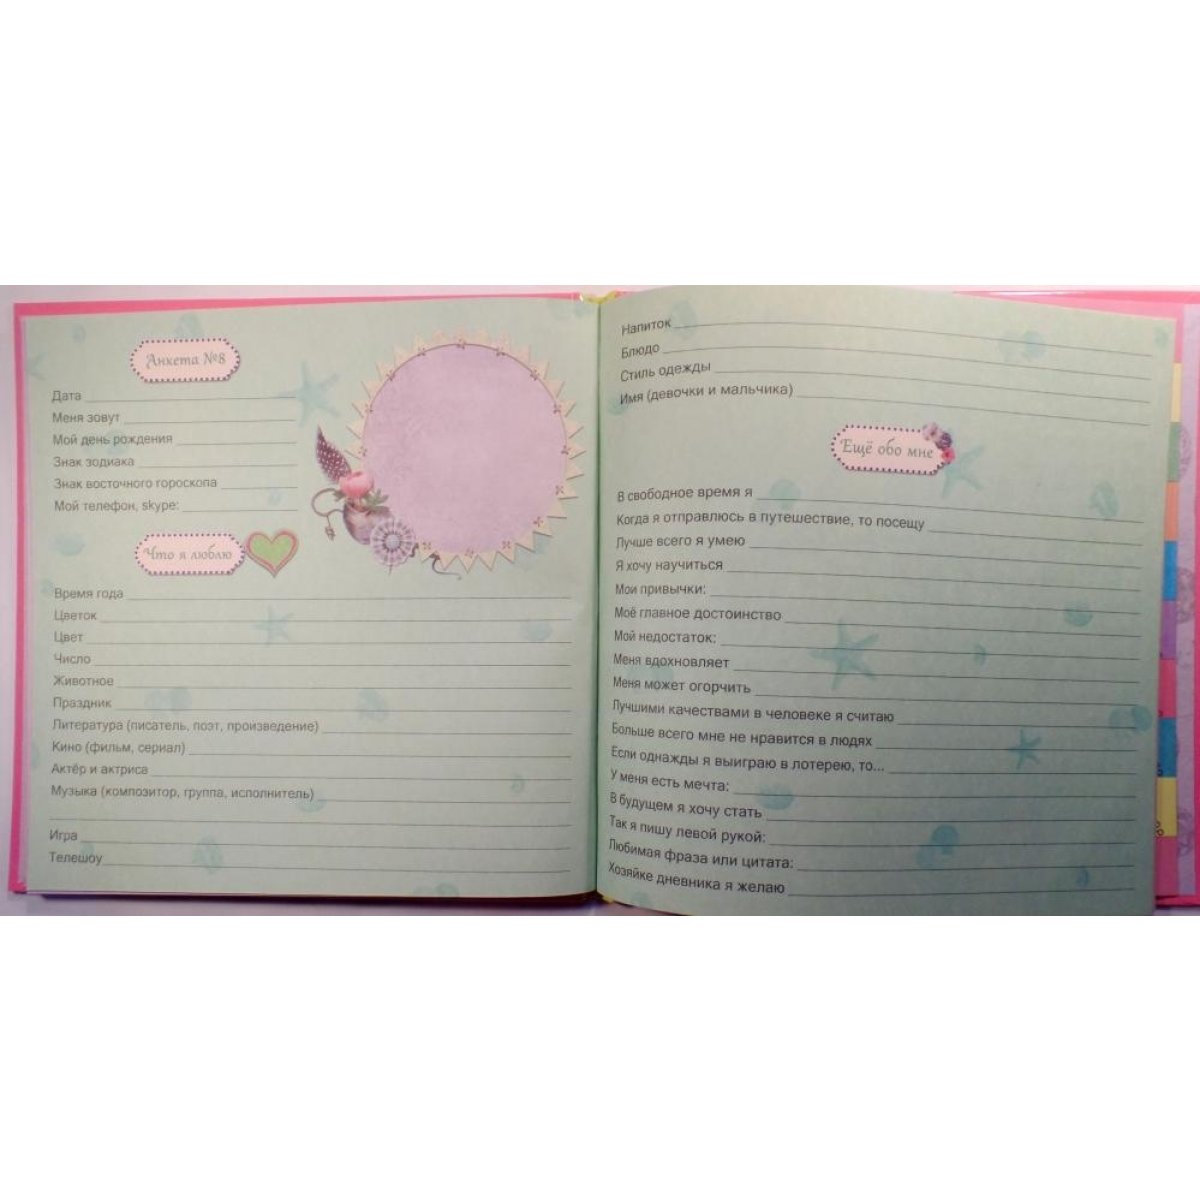 Анкета №8
Дата
Меня зовут
Мой день рождения
Знак зодиака
Знак восточного гороскопа
Мой телефон, skype:
Что я люблю
Время года
Цветок
Цвет
Число
Животное
Праздник
Литература (писатель, поэт, произведение)
Кино (фильм, сериал)
Актёр и актриса
Музыка (композитор, группа, исполнитель)
Игра
Телешоу
Напиток
Блюдо
Стиль одежды
Имя (девочки и мальчика)
Ещё обо мне
В свободное время я
Когда я отправлюсь в путешествие, то посещу
Лучше всего я умею
Я хочу научиться
Мои привычки:
Моё главное достоинство
Мой недостаток:
Меня вдохновляет
Меня может огорчить
Лучшими качествами в человеке я считаю
Больше всего мне не нравится в людях
Если однажды я выиграю в лотерею, то...
У меня есть мечта:
В будущем я хочу стать
Так я пишу левой рукой:
Любимая фраза или цитата:
Хозяйке дневника я желаю